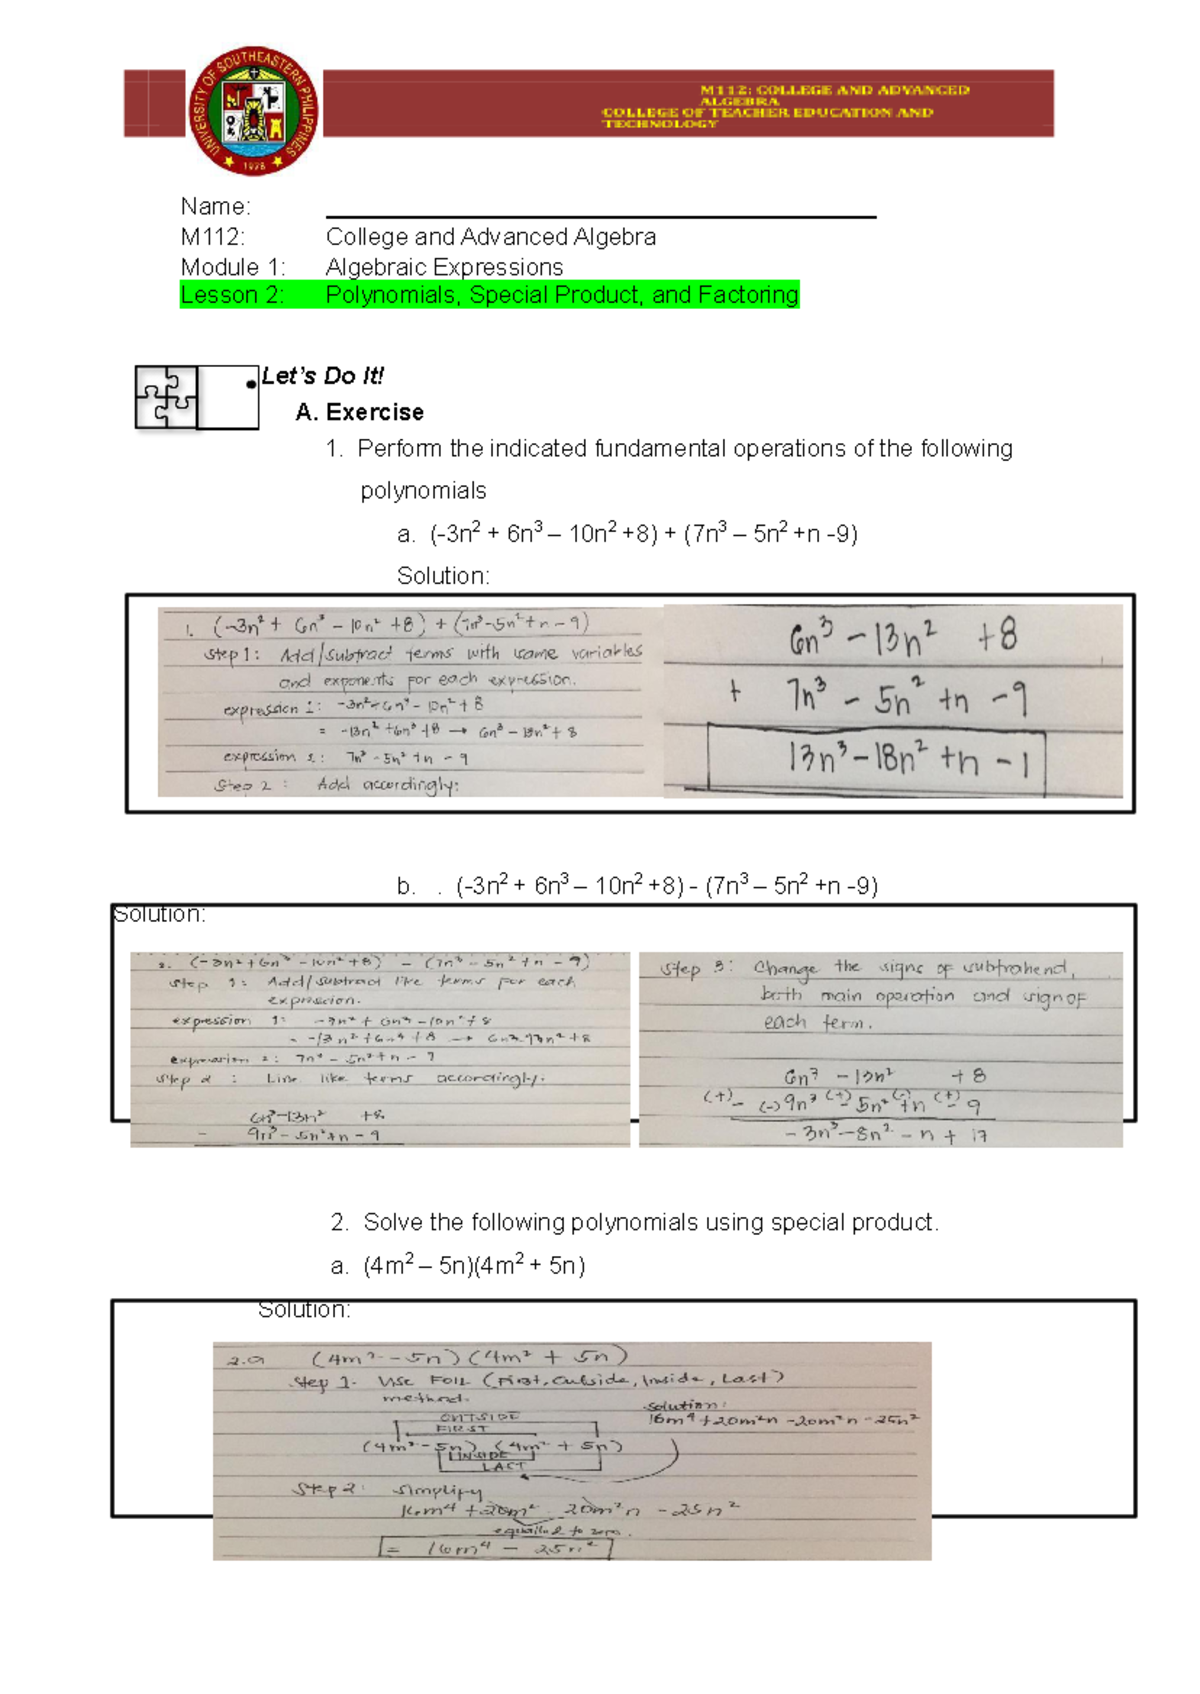 UNIVERSITY OF SOUTHEASTERN PHILIPPINES
1978
M112: COLLEGE AND ADVANCED
ALGEBRA
COLLEGE OF TEACHER EDUCATION AND
TECHNOLOGY
Name:
M112: College and Advanced Algebra
Module 1: Algebraic Expressions
Lesson 2: Polynomials, Special Product, and Factoring
Let's Do It!
A. Exercise
1. Perform the indicated fundamental operations of the following
polynomials
a. (-3n² + 6n³ – 10n² +8) + (7n³ – 5n² +n -9)
Solution:
1. (-3n² + 6n³ - 10n² +8) + (7n³-5n²+n-9)
Step 1: Add/subtract terms with same variables
and exponents for each expression.
expression 1: -3n²+6n³-10n²+8
= -13n²+6n³+8 → 6n³-13n²+8
expression 2: 7n³-5n²+n-9
Step 2: Add accordingly:
6n³ - 13n² +8
+ 7n³ - 5n² +n -9
13n³-18n²+n-1
b. . (-3n² + 6n³ – 10n² +8) - (7n³ – 5n² +n -9)
Solution:
2. (-3n²+6n³-10n²+8) - (7n³-5n²+n-9)
Step 1: Add/subtract like terms for each
expression.
expression 1: -3n²+6n³-10n²+8
= -13n²+6n³+8 → 6n³-13n²+8
expression 2: 7n³-5n²+n-9
Step 2: Line like terms accordingly:
6n³-13n² +8
- 9n³-5n²+n-9
Step 3: Change the signs of subtrahend,
both main operation and sign of
each term.
6n³ -13n² +8
(+)- (-)9n³ (+)-5n² (-)+n (+)-9
-3n³-8n²-n+17
2. Solve the following polynomials using special product.
a. (4m² – 5n)(4m² + 5n)
Solution:
2.a (4m²-5n)(4m²+5n)
Step 1. Use FOIL (First, Outside, Inside, Last)
method.
solution:
16m⁴+20m²n-20m²n-25n²
OUTSIDE
FIRST
(4m²-5n) (4m²+5n)
INSIDE
LAST
Step 2: Simplify
16m⁴+20m² - 20m²n - 25n²
equalled to zero.
= 16m⁴ - 25n²